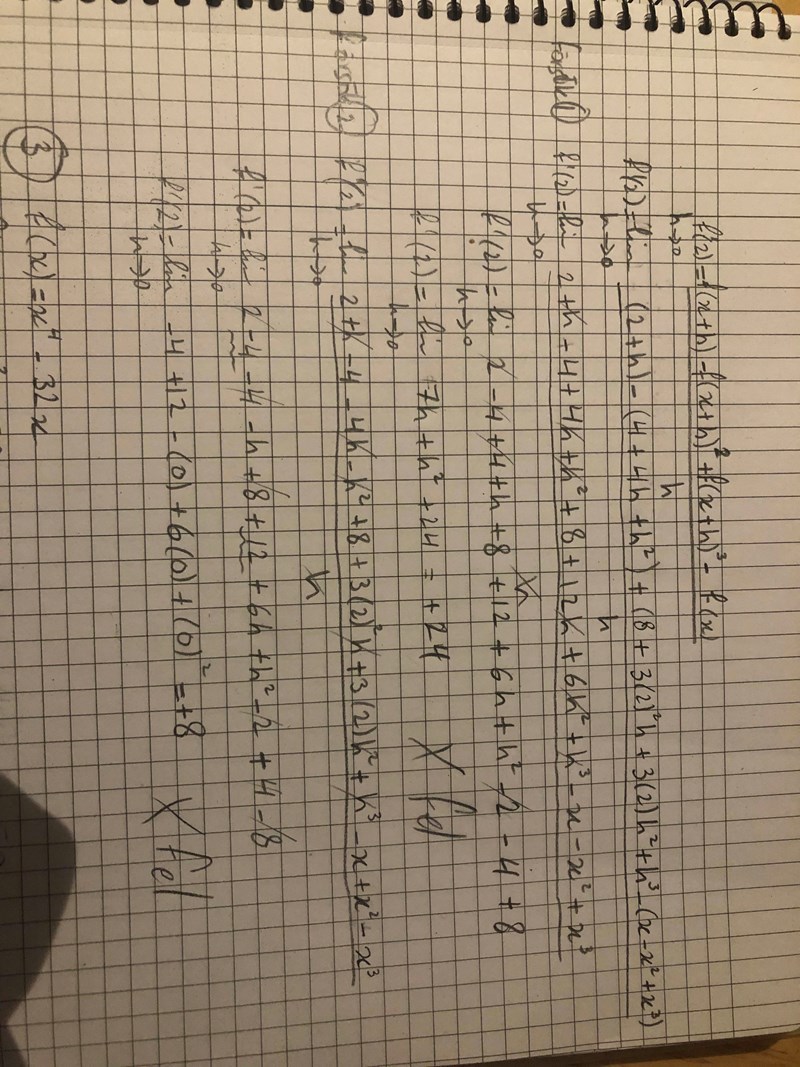 f'(2) = f(x+h) - f(x+h)² + f(x+h)³ - f(x)
h→0
h
f'(2) = lim (2+h) - (4 + 4h + h²) + (8 + 3(2)²h + 3(2)h² + h³ - (x - x² + x³)
h→0
h
① f'(2) = lim 2+h - 4 + 4h + h² + 8 + 12h + 6h² + h³ - x - x² + x³
h→0
h
f'(2) = lim 2 - 4 + 4 + h + 8 + 12 + 6h + h² - 2 - 4 + 8
h→0
f'(2) = lim 7h + h² + 24 = +24 X fel
h→0
② f'(2) = lim 2+h - 4 - 4h - h² + 8 + 3(2)²h + 3(2)h² + h³ - x + x² - x³
h→0
h
f'(2) = lim 2 - 4 - 4 - h + 8 + 12 + 6h + h² - 2 + 4 - 8
h→0
f'(2) = lim -4 + 12 - (0) + 6(0) + (0)² = +8 X fel
h→0
③ f(x) = x⁴ - 32x